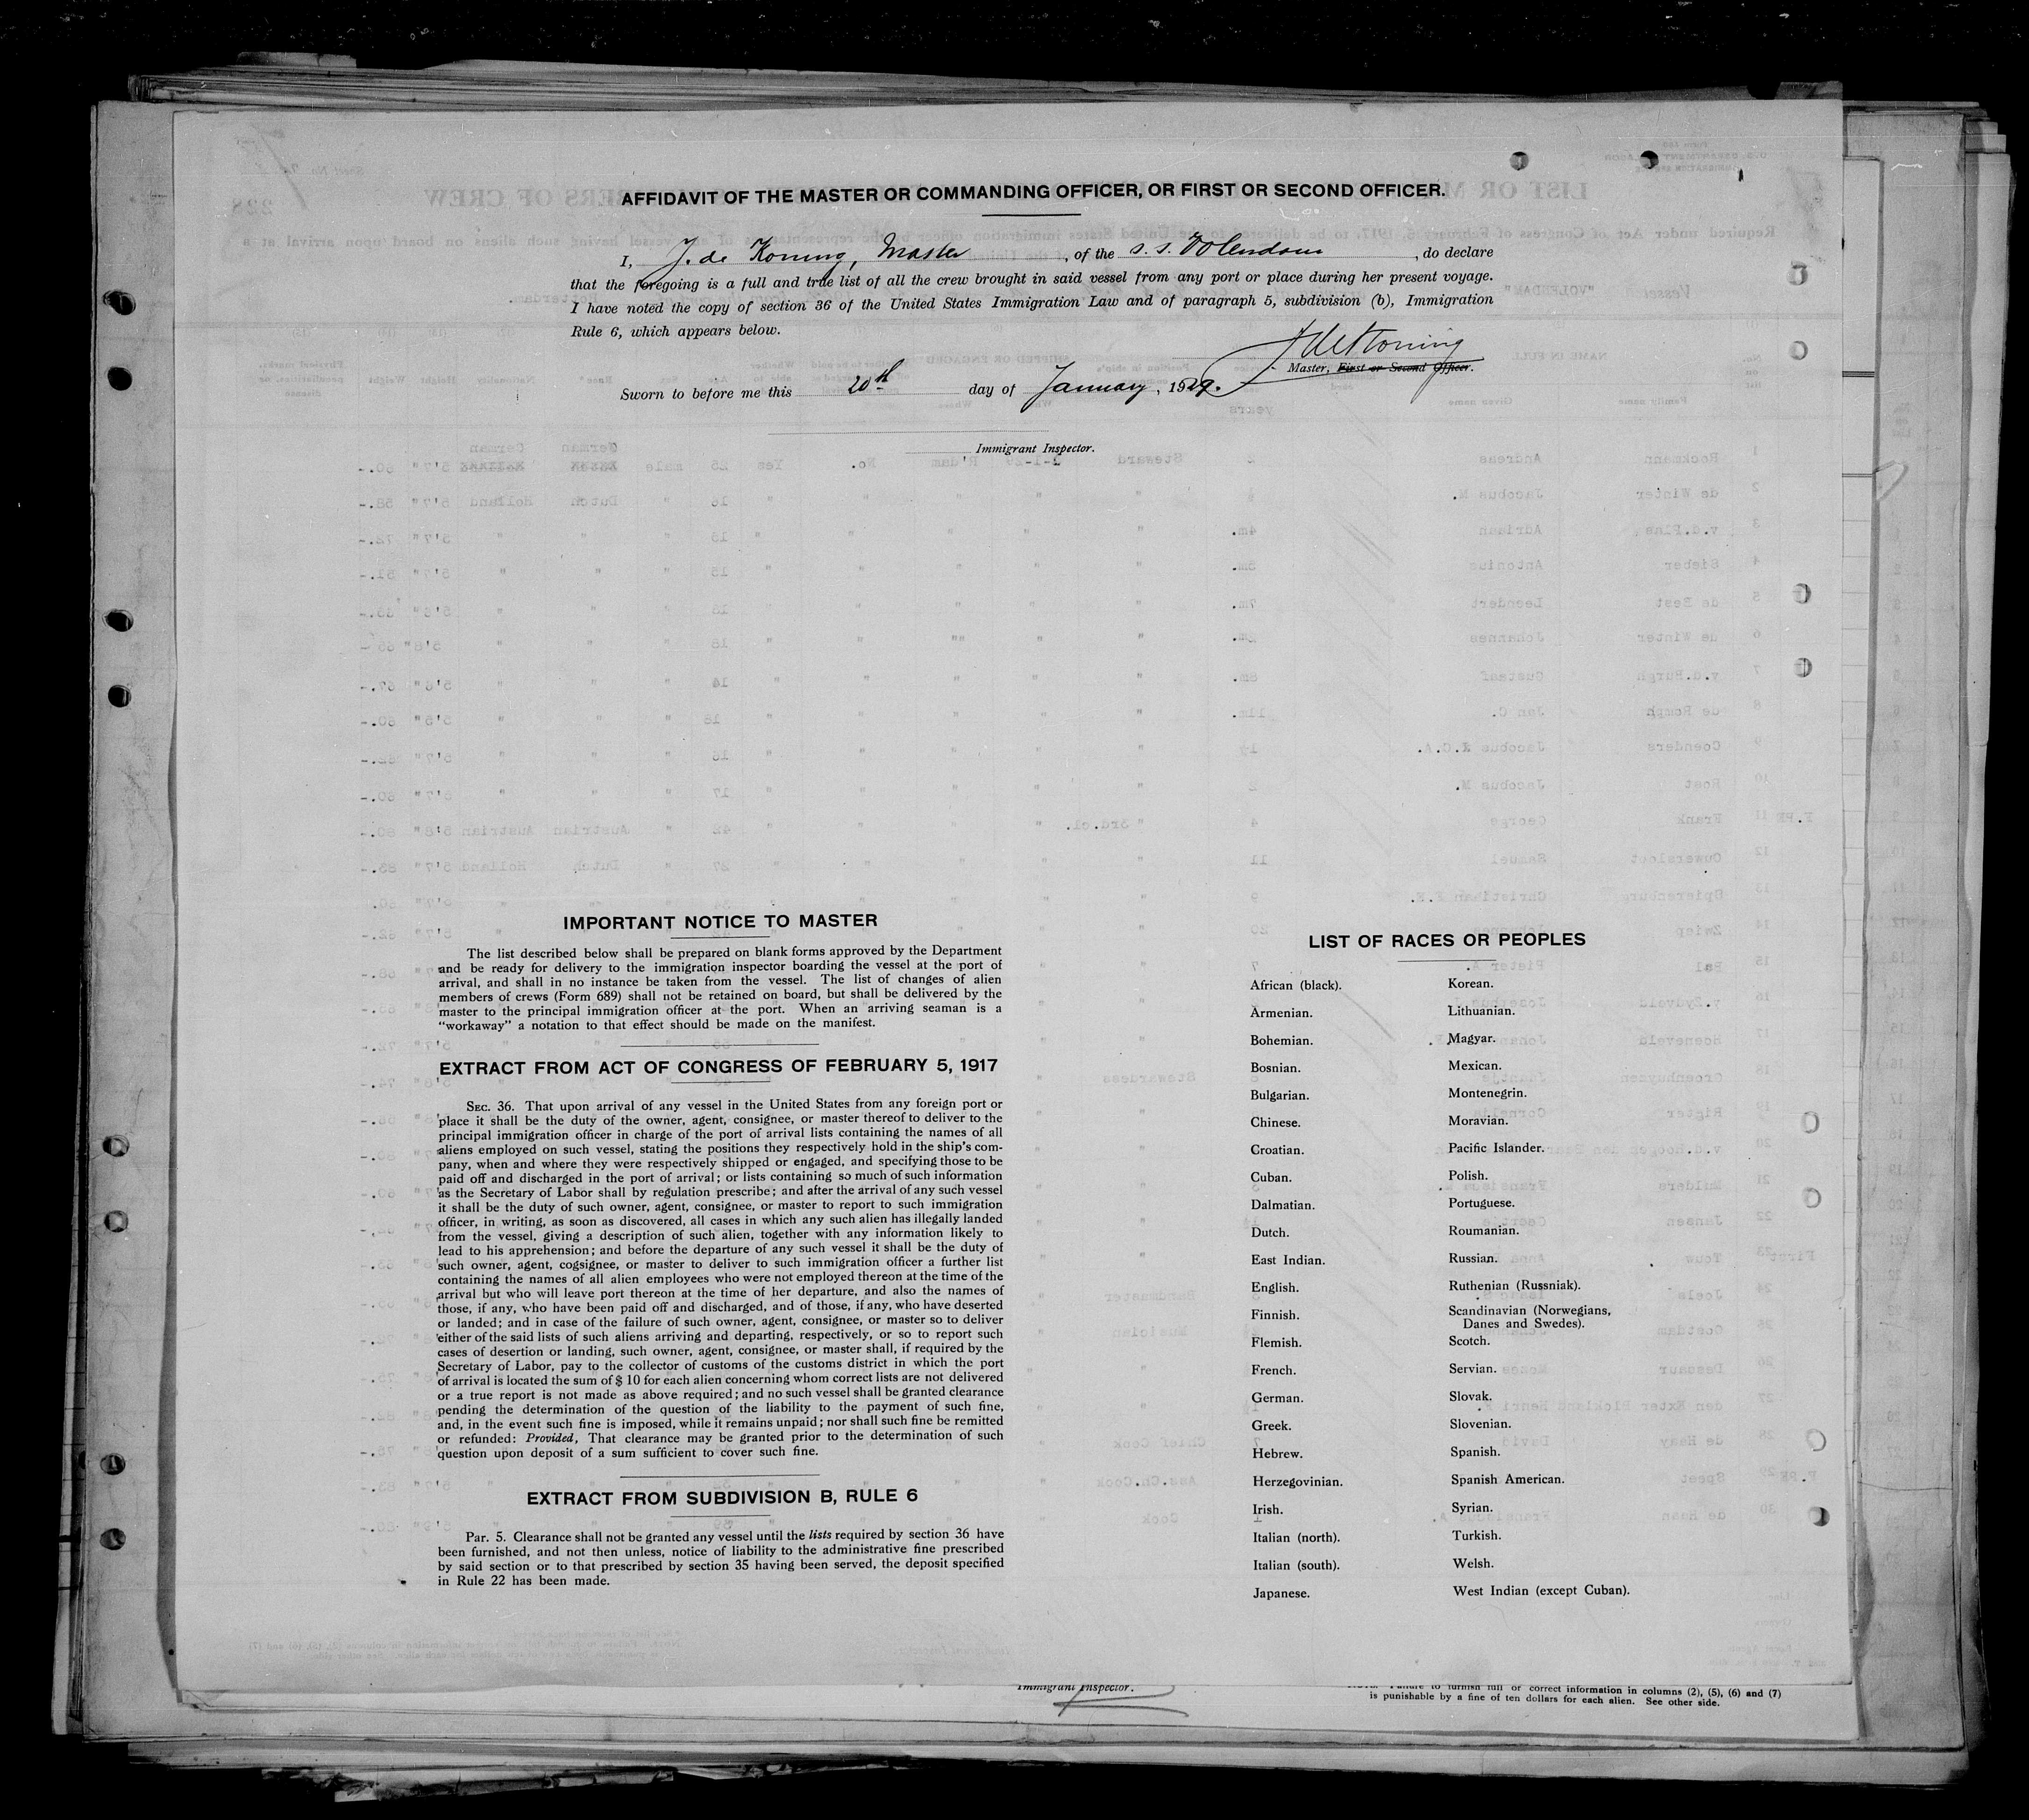 AFFIDAVIT OF THE MASTER OR COMMANDING OFFICER, OR FIRST OR SECOND OFFICER.
I, J. de Koning, Master, of the s.s. Volendam, do declare
that the foregoing is a full and true list of all the crew brought in said vessel from any port or place during her present voyage.
I have noted the copy of section 36 of the United States Immigration Law and of paragraph 5, subdivision (b), Immigration
Rule 6, which appears below.
JdeKoning
Master, First or Second Officer.
Sworn to before me this 20th day of January, 1929.
Immigrant Inspector.
IMPORTANT NOTICE TO MASTER
The list described below shall be prepared on blank forms approved by the Department
and be ready for delivery to the immigration inspector boarding the vessel at the port of
arrival, and shall in no instance be taken from the vessel. The list of changes of alien
members of crews (Form 689) shall not be retained on board, but shall be delivered by the
master to the principal immigration officer at the port. When an arriving seaman is a
"workaway" a notation to that effect should be made on the manifest.
EXTRACT FROM ACT OF CONGRESS OF FEBRUARY 5, 1917
SEC. 36. That upon arrival of any vessel in the United States from any foreign port or
place it shall be the duty of the owner, agent, consignee, or master thereof to deliver to the
principal immigration officer in charge of the port of arrival lists containing the names of all
aliens employed on such vessel, stating the positions they respectively hold in the ship's com-
pany, when and where they were respectively shipped or engaged, and specifying those to be
paid off and discharged in the port of arrival; or lists containing so much of such information
as the Secretary of Labor shall by regulation prescribe; and after the arrival of any such vessel
it shall be the duty of such owner, agent, consignee, or master to report to such immigration
officer, in writing, as soon as discovered, all cases in which any such alien has illegally landed
from the vessel, giving a description of such alien, together with any information likely to
lead to his apprehension; and before the departure of any such vessel it shall be the duty of
such owner, agent, cogsignee, or master to deliver to such immigration officer a further list
containing the names of all alien employees who were not employed thereon at the time of the
arrival but who will leave port thereon at the time of her departure, and also the names of
those, if any, who have been paid off and discharged, and of those, if any, who have deserted
or landed; and in case of the failure of such owner, agent, consignee, or master so to deliver
either of the said lists of such aliens arriving and departing, respectively, or so to report such
cases of desertion or landing, such owner, agent, consignee, or master shall, if required by the
Secretary of Labor, pay to the collector of customs of the customs district in which the port
of arrival is located the sum of $10 for each alien concerning whom correct lists are not delivered
or a true report is not made as above required; and no such vessel shall be granted clearance
pending the determination of the question of the liability to the payment of such fine,
and, in the event such fine is imposed, while it remains unpaid; nor shall such fine be remitted
or refunded: Provided, That clearance may be granted prior to the determination of such
question upon deposit of a sum sufficient to cover such fine.
EXTRACT FROM SUBDIVISION B, RULE 6
Par. 5. Clearance shall not be granted any vessel until the lists required by section 36 have
been furnished, and not then unless, notice of liability to the administrative fine prescribed
by said section or to that prescribed by section 35 having been served, the deposit specified
in Rule 22 has been made.
LIST OF RACES OR PEOPLES
African (black).
Armenian.
Bohemian.
Bosnian.
Bulgarian.
Chinese.
Croatian.
Cuban.
Dalmatian.
Dutch.
East Indian.
English.
Finnish.
Flemish.
French.
German.
Greek.
Hebrew.
Herzegovinian.
Irish.
Italian (north).
Italian (south).
Japanese.
Korean.
Lithuanian.
Magyar.
Mexican.
Montenegrin.
Moravian.
Pacific Islander.
Polish.
Portuguese.
Roumanian.
Russian.
Ruthenian (Russniak).
Scandinavian (Norwegians,
Danes and Swedes).
Scotch.
Servian.
Slovak.
Slovenian.
Spanish.
Spanish American.
Syrian.
Turkish.
Welsh.
West Indian (except Cuban).
Immigrant Inspector.
Failure to furnish full or correct information in columns (2), (5), (6) and (7)
is punishable by a fine of ten dollars for each alien. See other side.